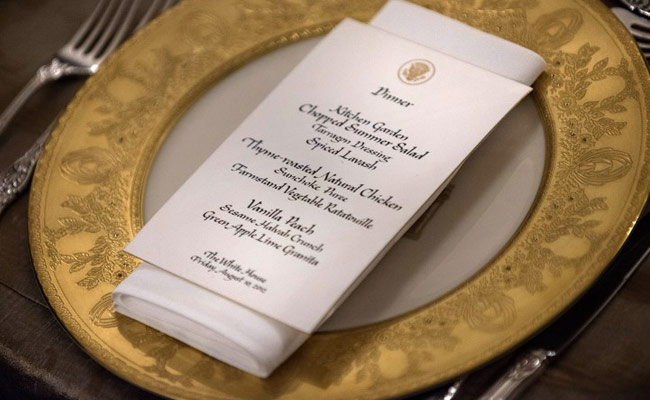 Dinner
Kitchen Garden
Chopped Summer Salad
Tarragon Dressing
Spiced Lavash
Thyme-roasted Natural Chicken
Sunchoke Puree
Farmstand Vegetable Ratatouille
Vanilla Peach
Sesame Halvah Crunch
Green Apple Lime Granita
The White House
Friday, August 10, 2012